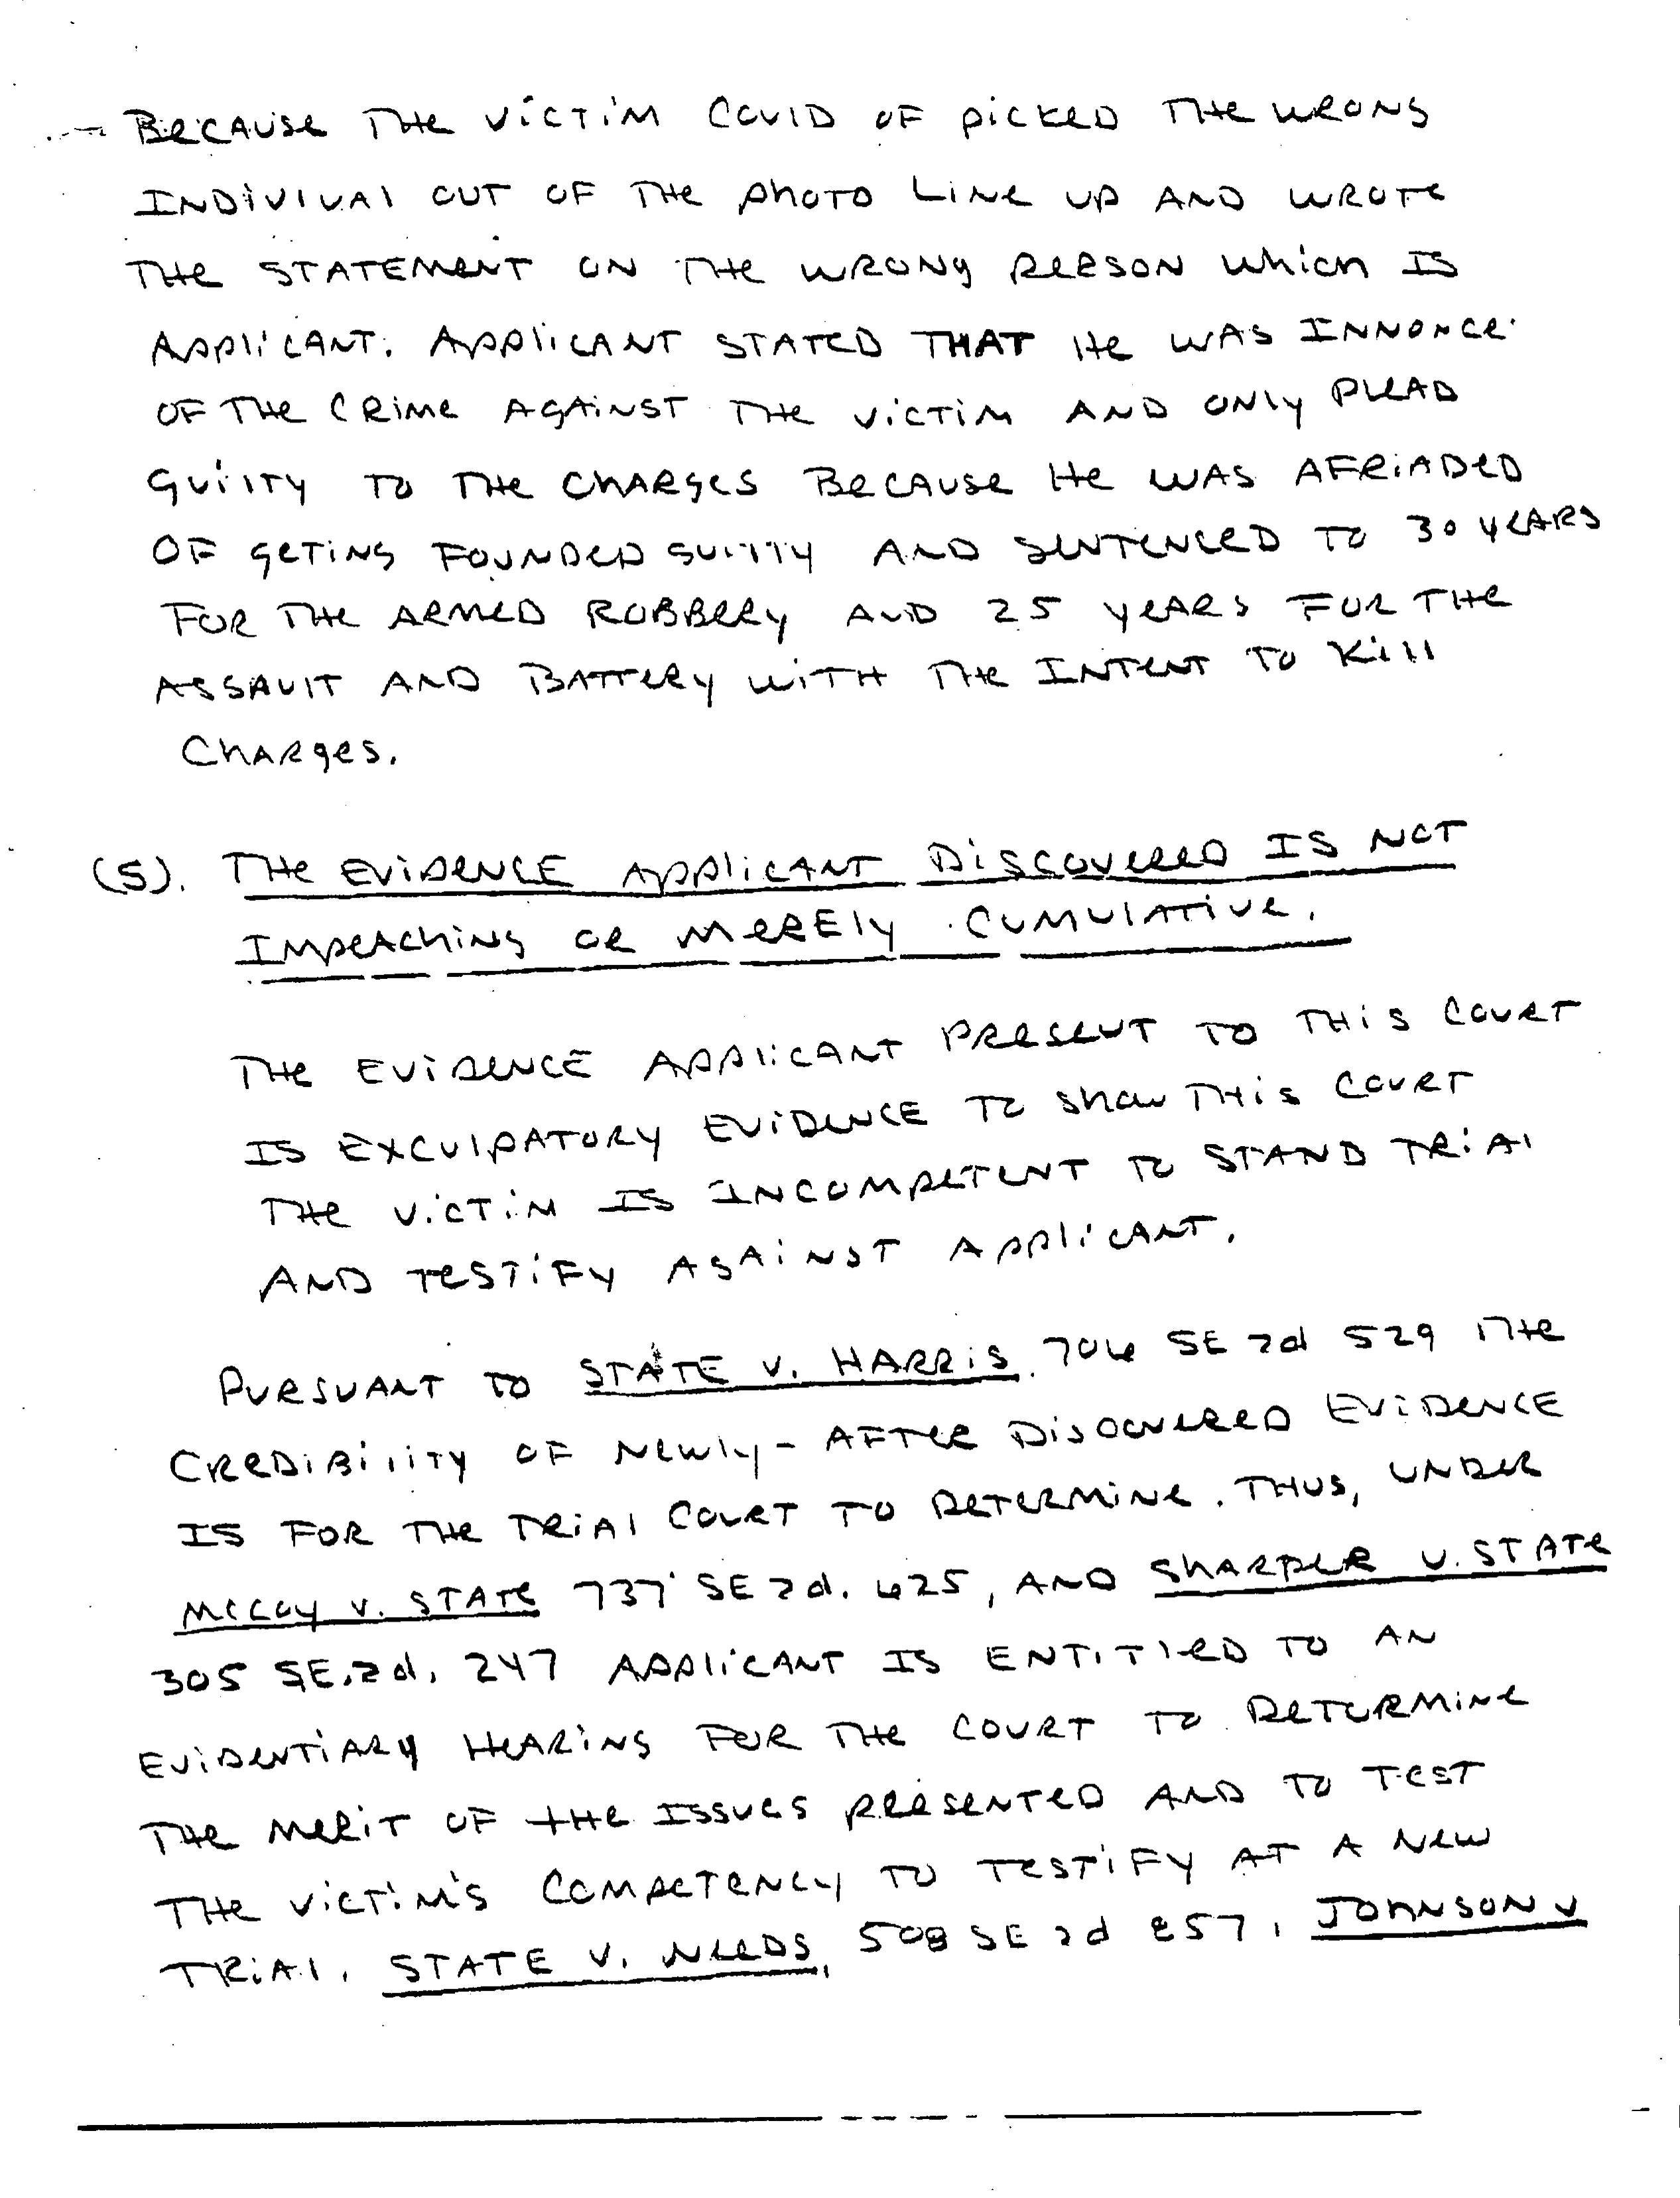 BECAUSE THE VICTIM COULD OF PICKED THE WRONG
INDIVIUAL OUT OF THE PHOTO LINE UP AND WROTE
THE STATEMENT ON THE WRONG PERSON WHICH IS
APPLICANT. APPLICANT STATED THAT HE WAS INNONCE
OF THE CRIME AGAINST THE VICTIM AND ONLY PLEAD
GUILTY TO THE CHARGES BECAUSE HE WAS AFRIADED
OF GETING FOUNDED GUILTY AND SENTENCED TO 30 YEARS
FOR THE ARMED ROBBERY AND 25 YEARS FOR THE
ASSAULT AND BATTERY WITH THE INTENT TO KILL
CHARGES.
(5). THE EVIDENCE APPLICANT DISCOVERED IS NOT
IMPEACHING OR MERELY CUMULATIVE.
THE EVIDENCE APPLICANT PRESENT TO THIS COURT
IS EXCULPATORY EVIDENCE TO SHOW THIS COURT
THE VICTIM IS INCOMPETENT TO STAND TRIAL
AND TESTIFY AGAINST APPLICANT.
PURSUANT TO STATE V. HARRIS. SE 2d 529 THE
CREDIBILITY OF NEWLY-AFTER DISCOVERED EVIDENCE
IS FOR THE TRIAL COURT TO DETERMINE. THUS, UNDER
MCCOY V. STATE 737 SE 2d. 625, AND SHARPER V. STATE
305 SE.2d. 247 APPLICANT IS ENTITLED TO AN
EVIDENTIARY HEARING FOR THE COURT TO DETERMINE
THE MERIT OF THE ISSUES PRESENTED AND TO TEST
THE VICTIM'S COMPETENCY TO TESTIFY AT A NEW
TRIAL. STATE V. NEEDS, 508 SE 2d 857, JOHNSON V